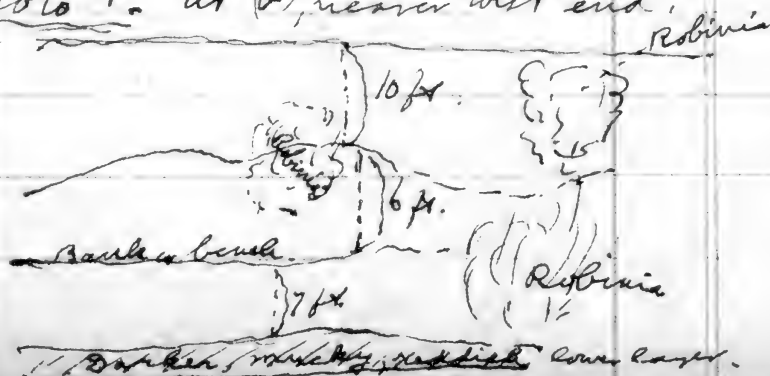 at (b), nearer west end,
Robinia
10 ft.
Robinia
6 ft.
Bank or bench.
Robinia
7 ft.
Darker, mucky, reddish lower layer.